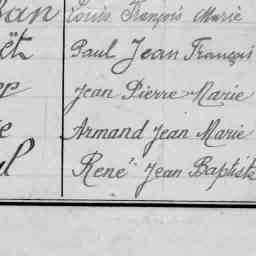 Louis François Marie
Paul Jean François
Jean Pierre Marie
Armand Jean Marie
René Jean Baptiste